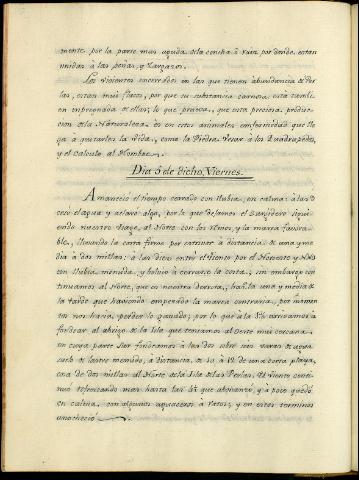 mente, por la parte mas aguda de la concha ó raiz por donde estan
unidas á las peñas, y Zargazos.
Los vivientes encerrados en las que tienen abundancia de Per
las, estan mui flacos, por que su substancia carnosa está tambi
en impregnada de ellas; lo que prueva, que esta preciosa produc
cion de la Naturaleza, es en estos animales enfermedad que lle
ga á quitarles la vida, como la Piedra Vezar á los Quadrupedos,
y el Calculo al Hombre.
Dia 5 de dicho, Viernes.
Amaneció el tiempo cerrado con llubia, en calma: á las
cesó el agua y aclaró algo, por lo que dejamos el Surgidero sigui
endo nuestro viage, al Norte con los Remos, y la marea favora
ble, llevando la corta firme por estribor á distancia de una y me
dia á dos millas: á las diez entró el viento por el Noroeste y NNO
con llubia menuda, y bolvió á cerrarse la costa; sin embargo con
tinuamos al Norte, que es nuestra derrota, hasta la una y media de
la tarde que haviendo empezado la marea contraria, por momen
tos nos hacia perder lo ganado; por lo que á la 3½ arrivamos á
fondear al abrigo de la Isla que teniamos al Oeste mui cercana,
en cuya parte Sur fondeamos á las dos sobre seis varas de agua
cuelo de lastre menudo, á distancia de 10 á 12 de una corta playa,
cosa de dos millas al Norte de la Isla de las Perlas. El viento conti
nuó refrescando mas hasta las 5½ que abonanzó, y á poco quedó
en calma, con algunos aguaceros á ratos; y en estos terminos
anocheció